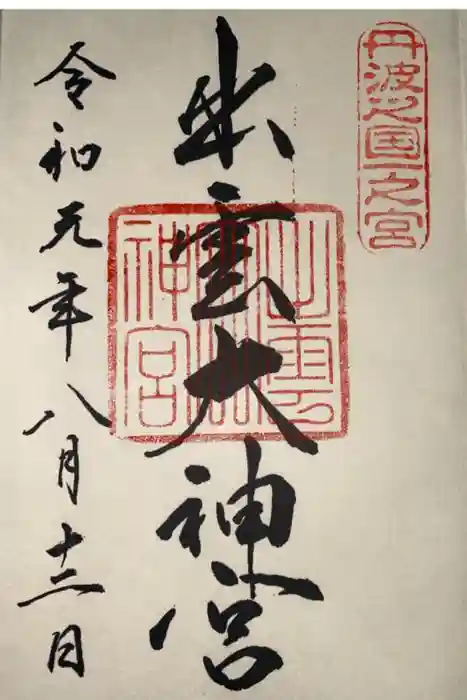 丹波國一之宮
出雲大神宮
出雲大神宮
令和元年八月十三日